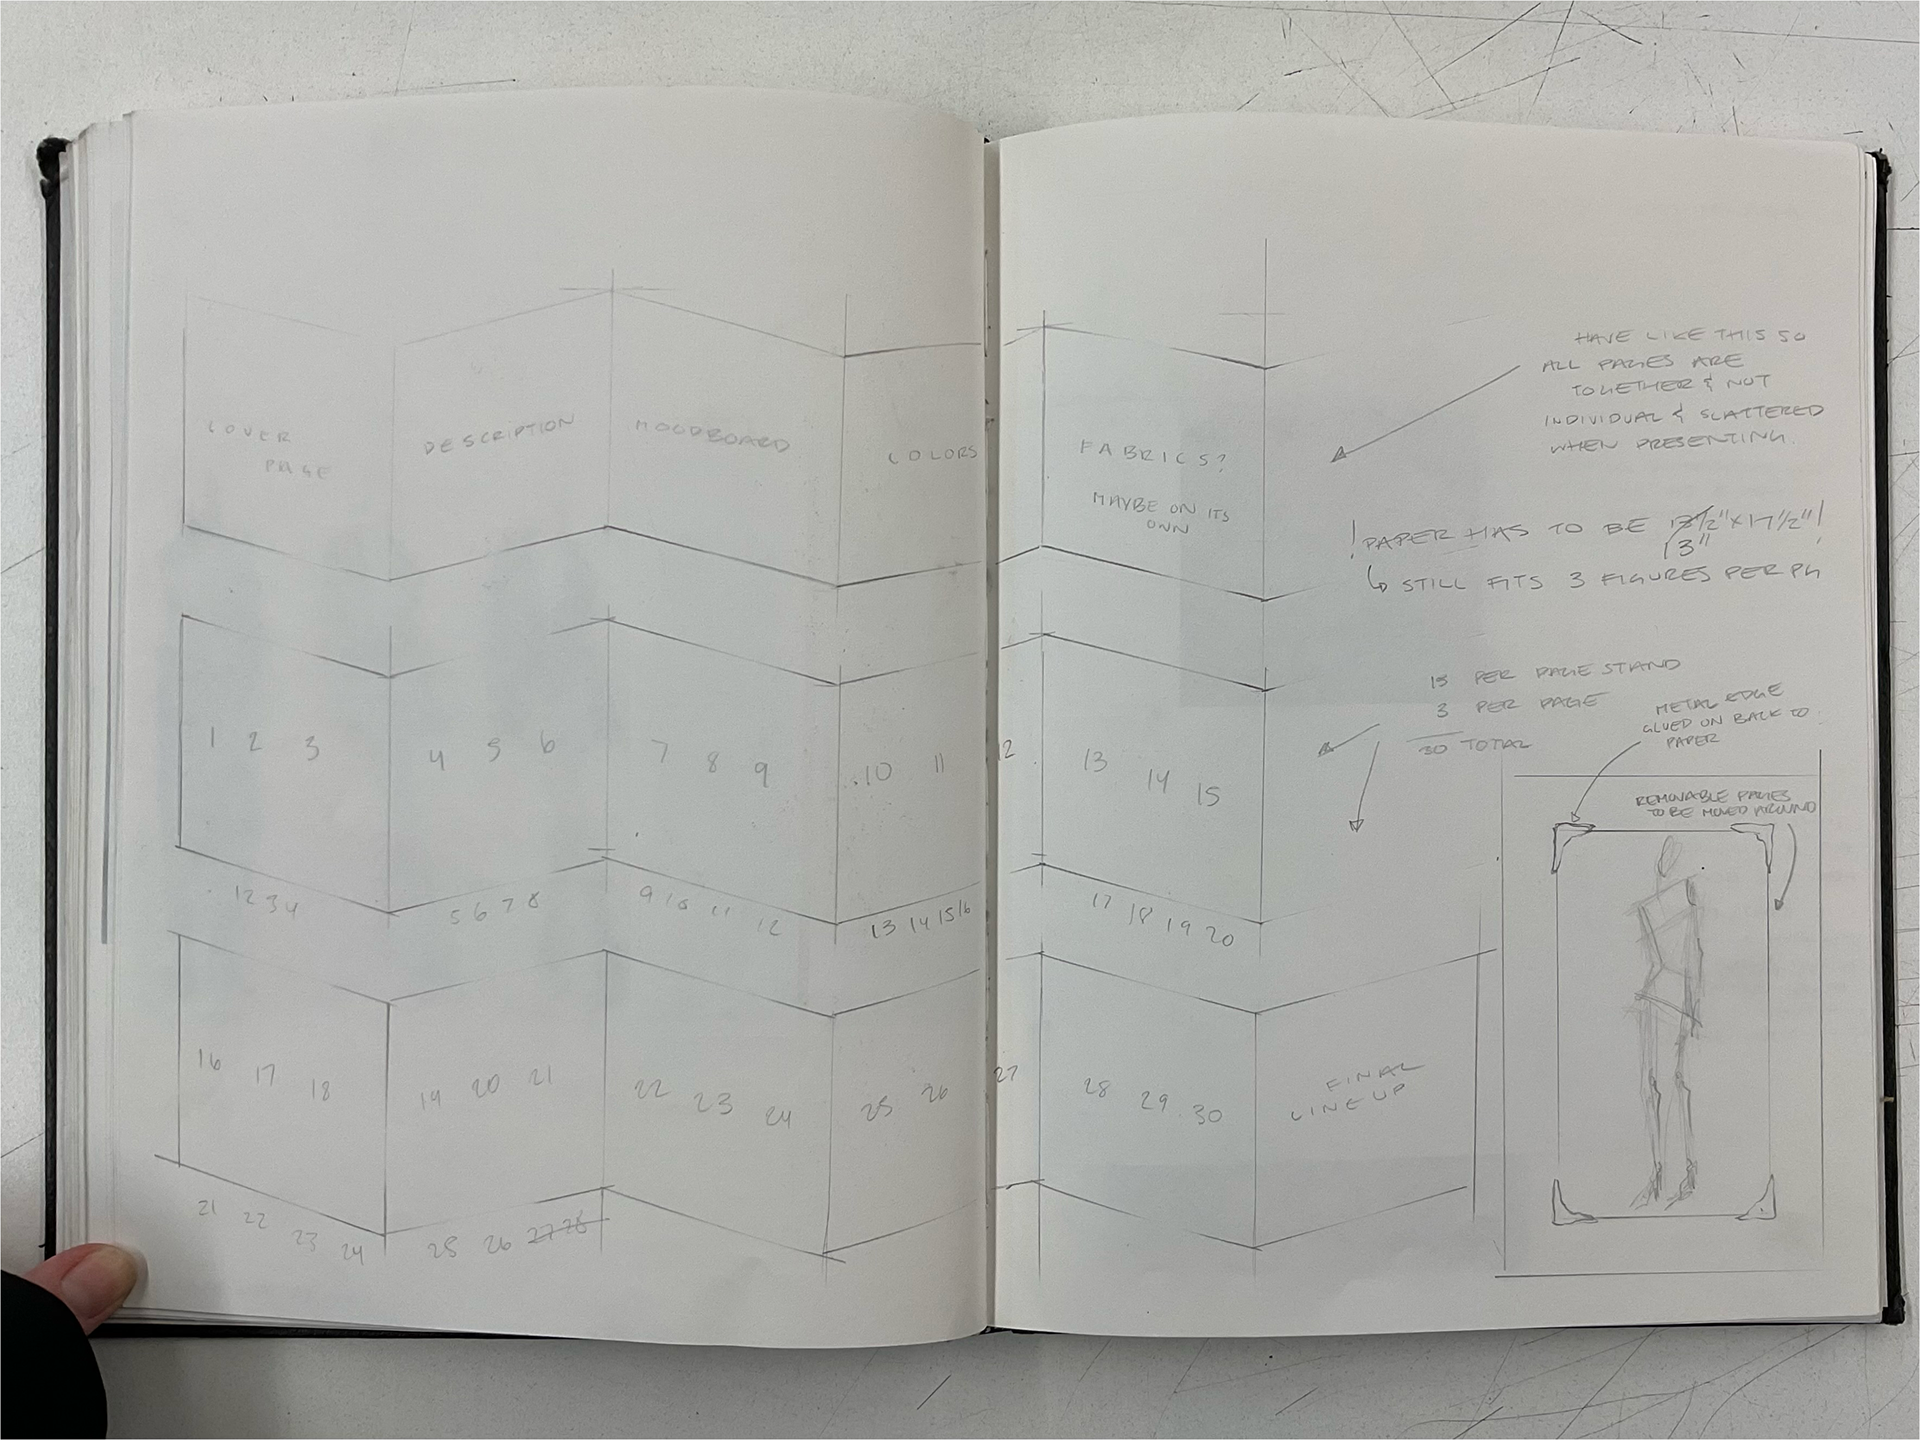 COVER
PAGE
DESCRIPTION
MOODBOARD
COLORS
FABRICS?
MAYBE ON ITS
OWN
HAVE LIKE THIS SO
ALL PAGES ARE
TOGETHER & NOT
INDIVIDUAL & SCATTERED
WHEN PRESENTING.
! PAPER HAS TO BE 13" x 17 1/2" !
↳ STILL FITS 3 FIGURES PER PG
15 PER PAGE STAND
3 PER PAGE
30 TOTAL
METAL EDGE
GLUED ON BACK TO
PAPER
REMOVABLE PAGES
TO BE MOVED AROUND
1 2 3
4 5 6
7 8 9
10 11 12
13 14 15
1 2 3 4
5 6 7 8
9 10 11 12
13 14 15 16
17 18 19 20
16 17 18
19 20 21
22 23 24
25 26 27
28 29 30
FINAL
LINEUP
21 22 23 24
25 26 27 28